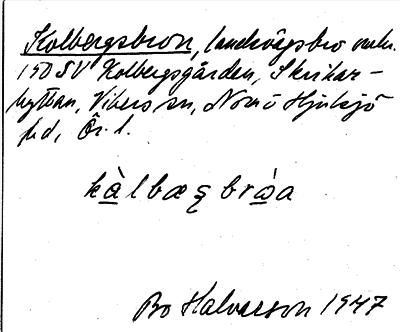 Kolbergsbron, landsvägsbro omkr.
150 SV Kolbergsgården, Skrikar-
hyttan, Vikers sn, Nora o Hjulsjö
hd, Ör. l.
kàlbæȩbrὼa
Bo Halvarson 1947